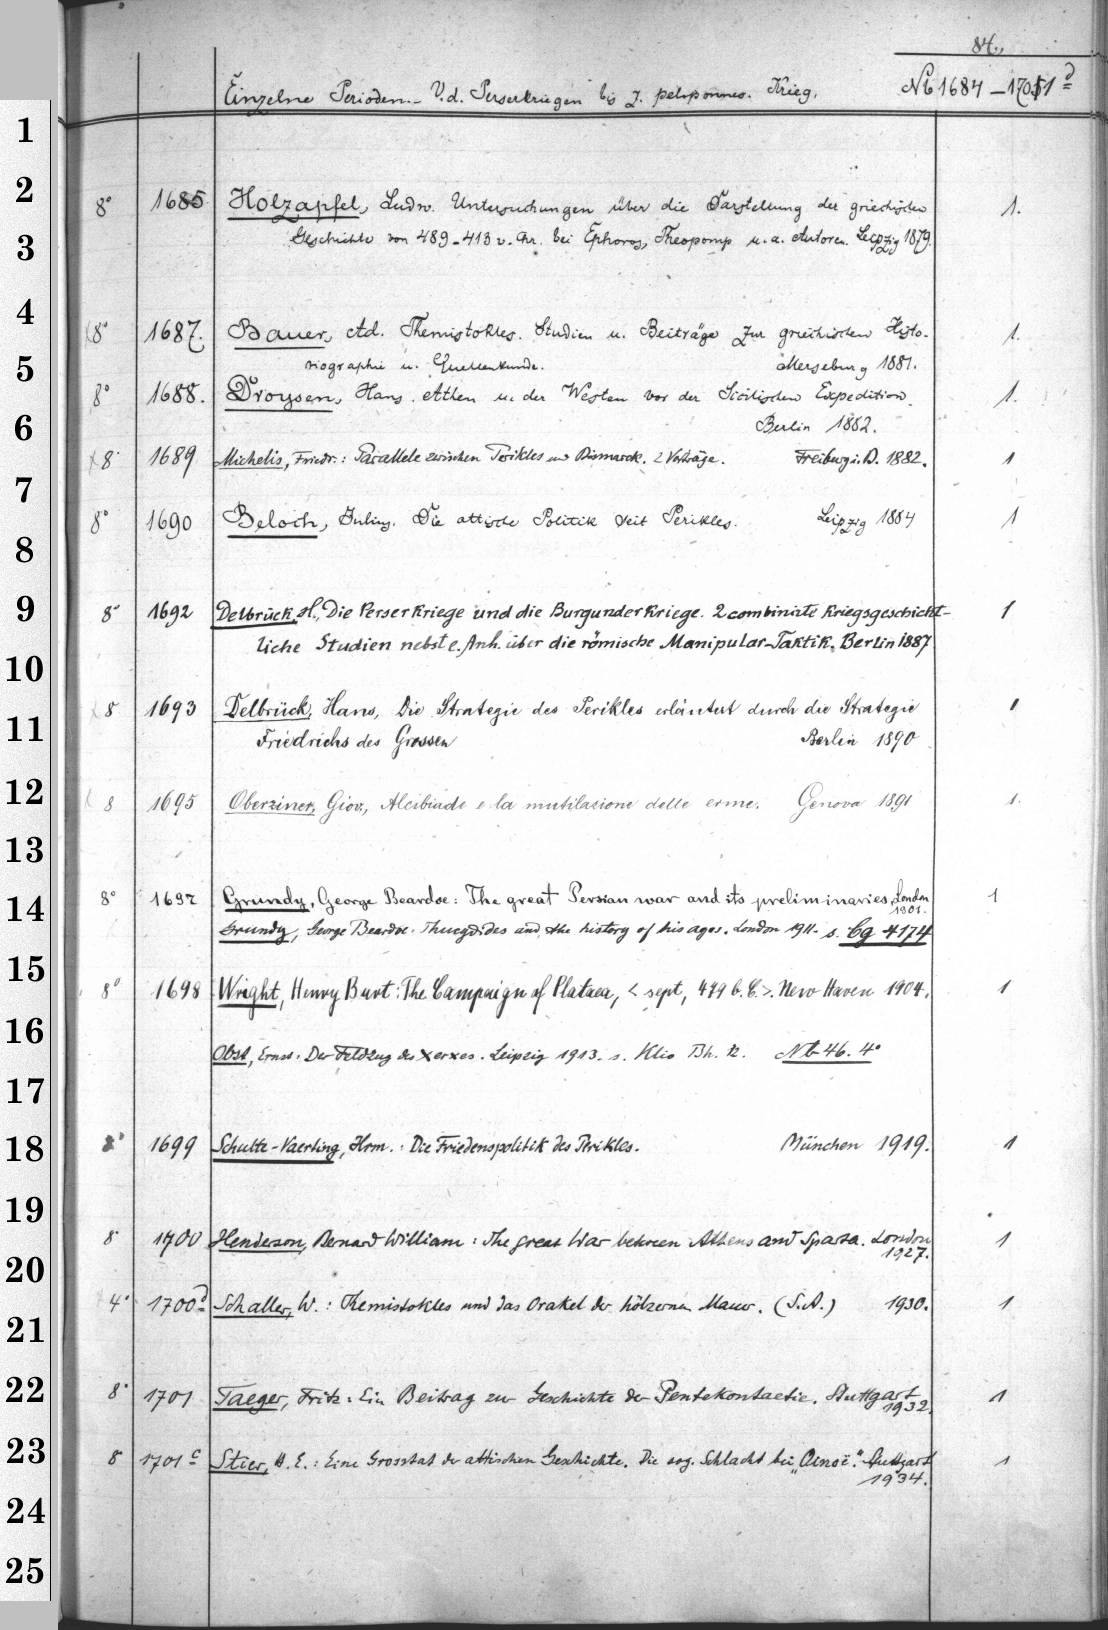 84.
Einzelne Perioden. V. d. Perserkriegen bis z. peloponnes. Krieg. Nb 1684–1701 d
1
2
8° 1685 Holzapfel, Ludw. Untersuchungen über die Darstellung der griechischen 1.
3
Geschichte von 489–413 v. Chr. bei Ephoros, Theopomp u. a. Autoren. Leipzig 1879.
4
8° 1687. Bauer, Ad. Themistokles. Studien u. Beiträge zur griechischen Histo- 1.
5
riographie u. Quellenkunde. Merseburg 1881.
8° 1688. Droysen, Hans. Athen u. der Westen vor der Sicilischen Expedition. 1.
6
Berlin 1882.
8° 1689 Michelis, Friedr.: Parallele zwischen Perikles und Bismarck. 2 Vorträge. Freiburg i. B. 1882. 1
7
8° 1690 Beloch, Julius. Die attische Politik seit Perikles. Leipzig 1884 1
8
9
8° 1692 Delbrück, H., Die Perserkriege und die Burgunderkriege. 2 combinirte Kriegsgeschicht- 1
liche Studien nebst e. Anh. über die römische Manipular-Taktik. Berlin 1887
10
8 1693 Delbrück, Hans, Die Strategie des Perikles erläutert durch die Strategie 1
11
Friedrichs des Grossen Berlin 1890
12
8 1695 Oberziner, Giov., Alcibiade e la mutilazione delle erme. Genova 1891 1.
13
14
8° 1697 Grundy, George Beardoe: The great Persian war and its preliminaries. London 1
1901.
Grundy, George Beardoe: Thucydides and the history of his age. London 1911. s. Cg 4174
15
8° 1698 Wright, Henry Burt: The Campaign of Plataea, < sept, 479 b. C. >. New Haven 1904. 1
16
Obst, Ernst: Der Feldzug des Xerxes. Leipzig 1913. s. Klio Bh. 12. Nb 46. 4°
17
18
8° 1699 Schulte-Vaerting, Hrm.: Die Friedenspolitik des Perikles. München 1919. 1
19
8 1700 Henderson, Bernard William: The great War between Athens and Sparta. London 1
1927.
20
4° 1700 d Schaller, W.: Themistokles und das Orakel der hölzernen Mauer. (S.A.) 1930. 1
21
22
8° 1701 Taeger, Fritz: Ein Beitrag zur Geschichte der Pentekontaetie. Stuttgart 1
1932.
23
8 1701 c Stier, H. E.: Eine Grosstat der attischen Geschichte. Die sog. Schlacht bei „Oinoë". Stuttgart 1
1934.
24
25